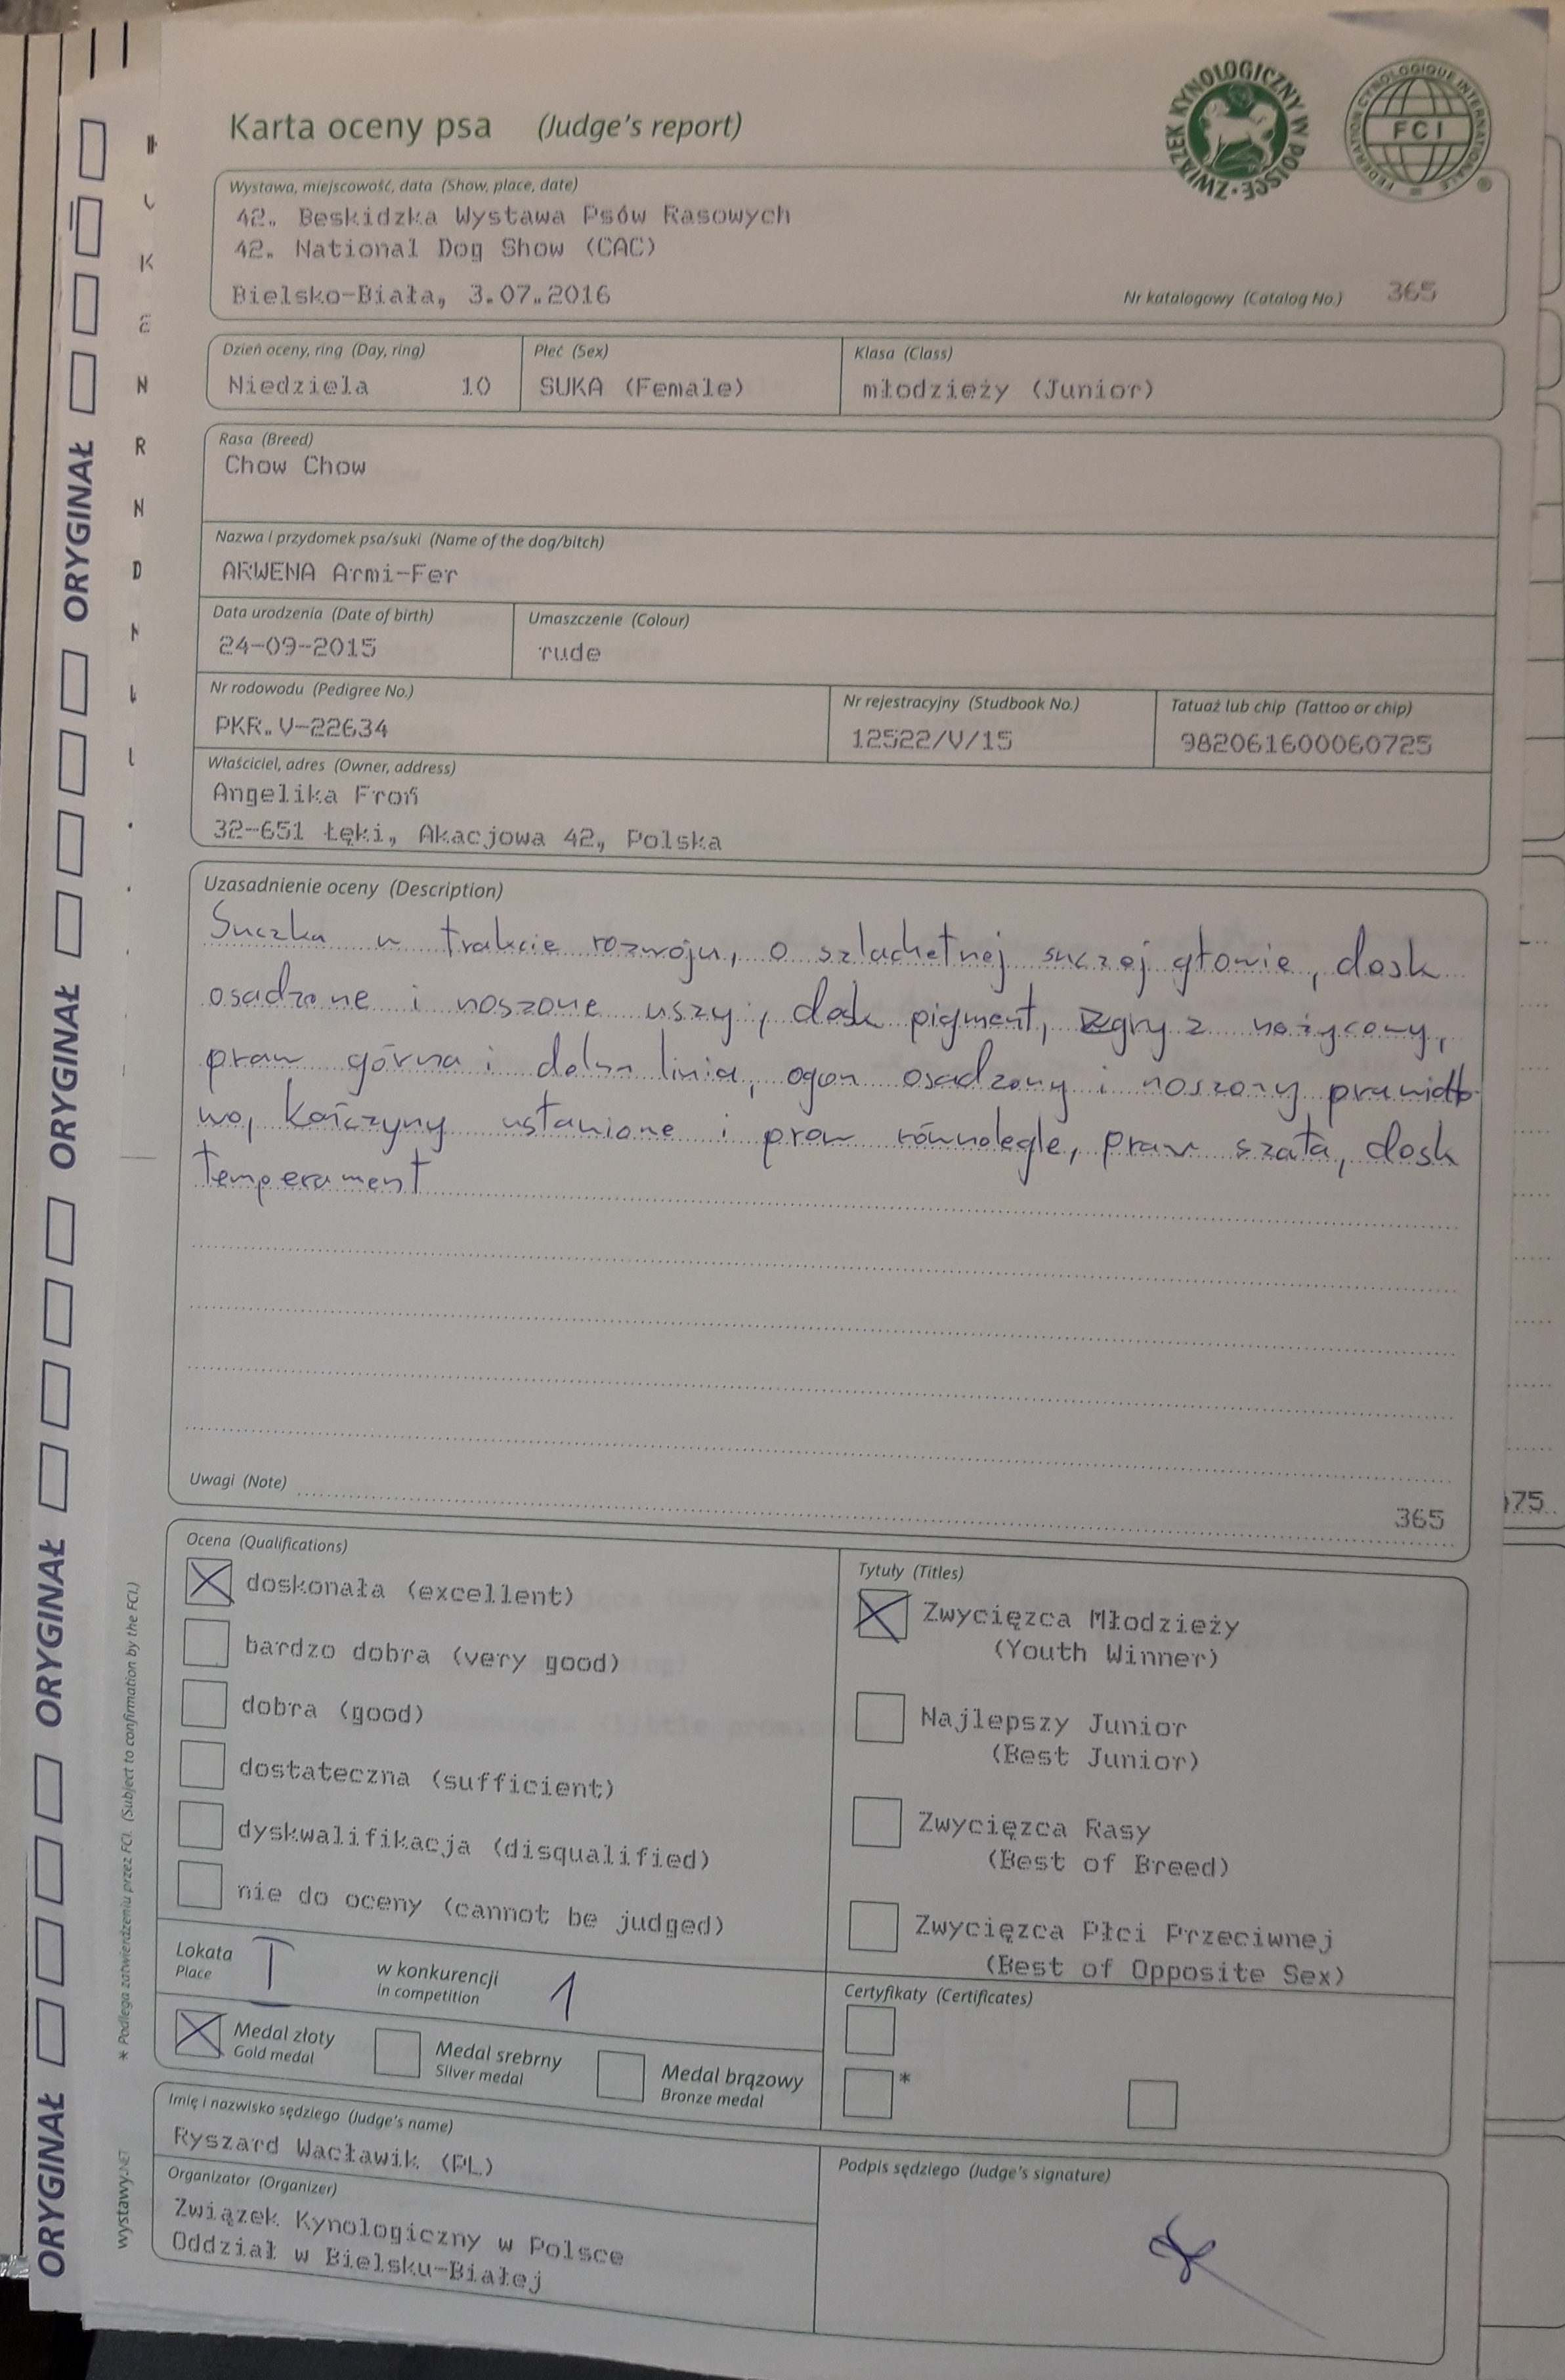 Karta oceny psa (Judge's report)
ZWIĄZEK KYNOLOGICZNY W POLSCE
FEDERATION CYNOLOGIQUE INTERNATIONALE
FCI
®
Wystawa, miejscowość, data (Show, place, date)
42. Beskidzka Wystawa Psów Rasowych
42. National Dog Show (CAC)
Bielsko-Biała, 3.07.2016
Nr katalogowy (Catalog No.) 365
Dzień oceny, ring (Day, ring)
Niedziela 10
Płeć (Sex)
SUKA (Female)
Klasa (Class)
młodzieży (Junior)
Rasa (Breed)
Chow Chow
Nazwa i przydomek psa/suki (Name of the dog/bitch)
ARWENA Armi-Fer
Data urodzenia (Date of birth)
24-09-2015
Umaszczenie (Colour)
rude
Nr rodowodu (Pedigree No.)
PKR.V-22634
Nr rejestracyjny (Studbook No.)
12522/V/15
Tatuaż lub chip (Tattoo or chip)
982061600060725
Właściciel, adres (Owner, address)
Angelika Froń
32-651 Łęki, Akacjowa 42, Polska
Uzasadnienie oceny (Description)
Suczka w trakcie rozwoju, o szlachetnej suczej głowie, dosk
osadzone i noszone uszy, dosk pigment, zgryz nożycowy,
praw górna i dolna linia, ogon osadzony i noszony prawidło
wo, kończyny ustawione i praw równolegle, praw szata, dosk
temperament
Uwagi (Note)
365
Ocena (Qualifications)
doskonała (excellent)
bardzo dobra (very good)
dobra (good)
dostateczna (sufficient)
dyskwalifikacja (disqualified)
nie do oceny (cannot be judged)
Tytuły (Titles)
Zwycięzca Młodzieży
(Youth Winner)
Najlepszy Junior
(Best Junior)
Zwycięzca Rasy
(Best of Breed)
Zwycięzca Płci Przeciwnej
(Best of Opposite Sex)
Lokata I w konkurencji 1
Place in competition
Medal złoty
Gold medal
Medal srebrny
Silver medal
Medal brązowy
Bronze medal
Certyfikaty (Certificates)
*
Imię i nazwisko sędziego (Judge's name)
Ryszard Wacławik (PL)
Organizator (Organizer)
Związek Kynologiczny w Polsce
Oddział w Bielsku-Białej
Podpis sędziego (Judge's signature)
* Podlega zatwierdzeniu przez FCI. (Subject to confirmation by the FCI.)
wystawy.NET
ORYGINAŁ
ORYGINAŁ
ORYGINAŁ
ORYGINAŁ
75